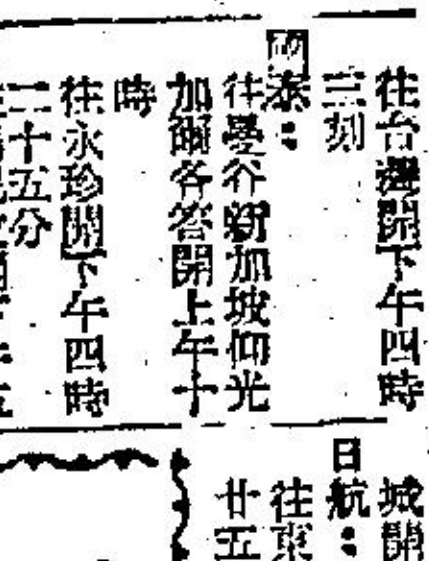 往台灣開下午四時
三刻
國泰：
往曼谷新加坡仰光
加爾各答開上午十
時
往永珍開下午四時
二十五分
城開
日航：
往東
廿五